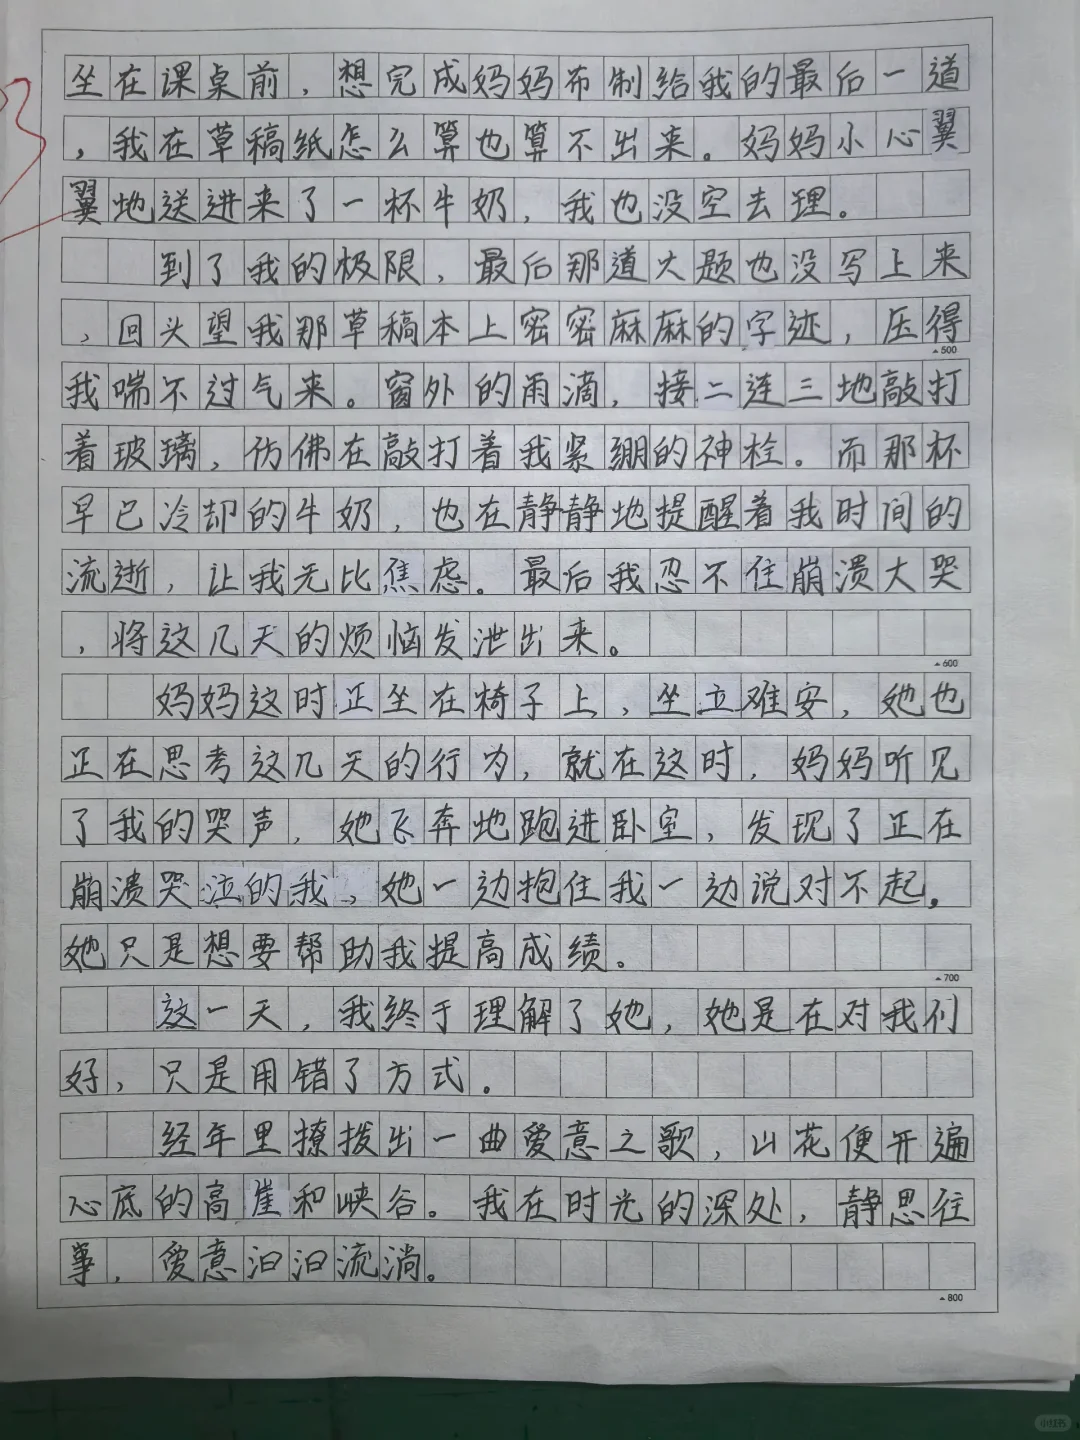 坐在课桌前，想完成妈妈布制给我的最后一道
，我在草稿纸怎么算也算不出来。妈妈小心翼
翼地送进来了一杯牛奶，我也没空去理。
到了我的极限，最后那道大题也没写上来
，回头望我那草稿本上密密麻麻的字迹，压得
500
我喘不过气来。窗外的雨滴，接二连三地敲打
着玻璃，仿佛在敲打着我紧绷的神栓。而那杯
早已冷却的牛奶，也在静静地提醒着我时间的
流逝，让我无比焦虑。最后我忍不住崩溃大哭
，将这几天的烦恼发泄出来。
600
妈妈这时正坐在椅子上，坐立难安，她也
正在思考这几天的行为，就在这时，妈妈听见
了我的哭声，她飞奔地跑进卧室，发现了正在
崩溃哭泣的我，她一边抱住我一边说对不起。
她只是想要帮助我提高成绩。
700
这一天，我终于理解了她，她是在对我们
好，只是用错了方式。
经年里撩拨出一曲爱意之歌，山花便开遍
心底的高崖和峡谷。我在时光的深处，静思往
事，爱意汩汩流淌。
800
小红书